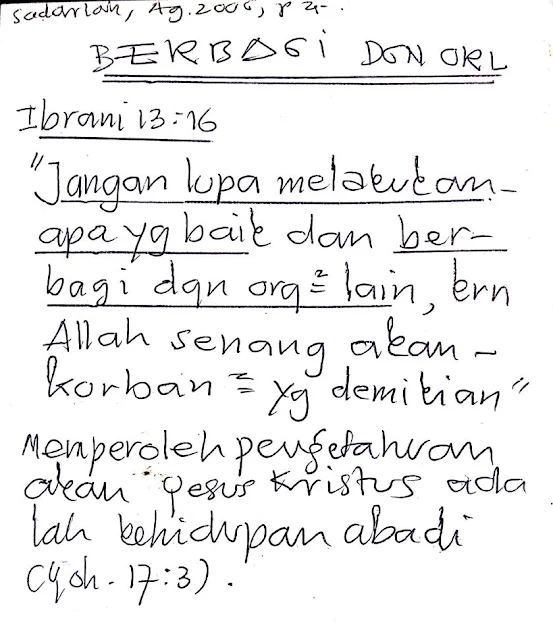 Sadarlah, Ag. 2006, p 21.
BERBAGI DGN ORL
Ibrani 13:16
"Jangan lupa melakukan
apa yg baik dan ber-
bagi dgn org² lain, krn
Allah senang akan
korban² yg demikian"
Memperoleh pengetahuan
akan Yesus Kristus ada
lah kehidupan abadi
(Yoh. 17:3).